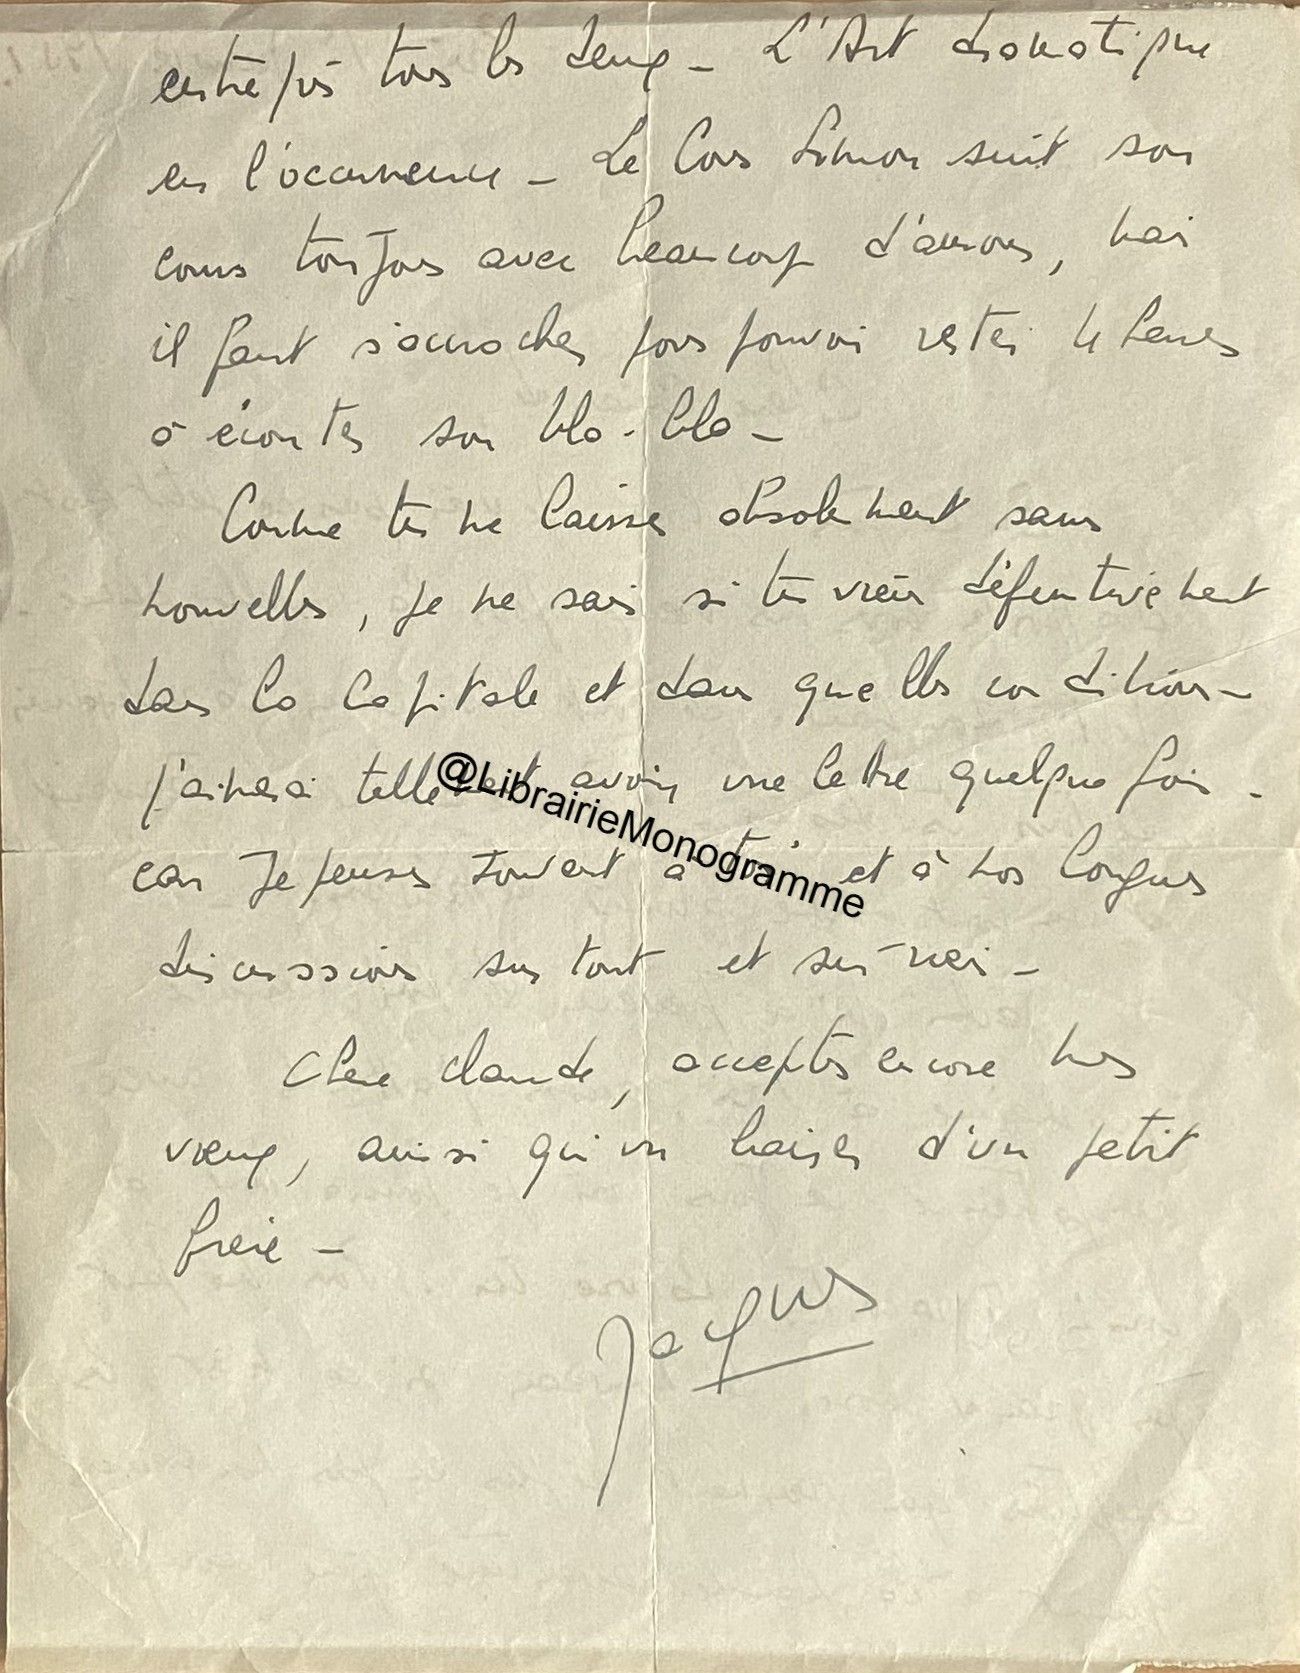 entrepris tous les deux _ L'Art dramatique
en l'occurrence _ Le Cours Simon suit son
cours toujours avec beaucoup d'amour, mais
il faut s'accrocher pour pouvoir rester 4 heures
à écouter son bla-bla _
Comme tu me laisses absolument sans
nouvelles, je ne sais si tu viens définitivement
dans la Capitale et dans quelles conditions _
j'aimerai tellement avoir une lettre quelque fois _
car je penses souvent à toi et à nos longues
discussions sur tout et sur rien _
Chère Claude, acceptes encore mes
vœux, ainsi qu'un baiser d'un petit
frère _
Jacques
@LibrairieMonogramme